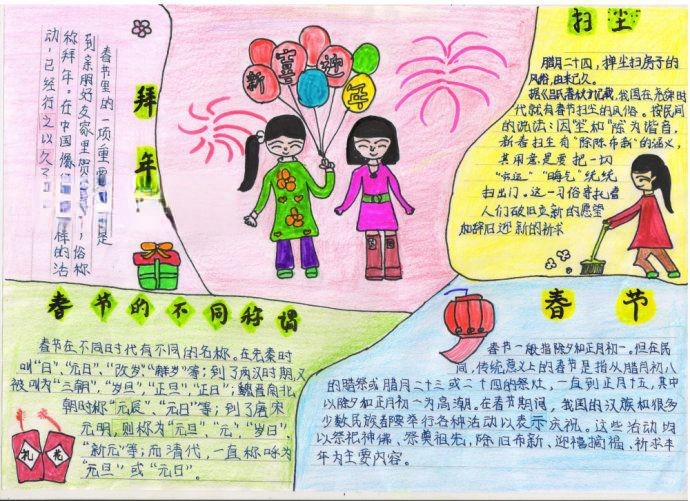 拜年
春节里的一项重
是
到亲朋好友家里贺
俗称
称拜年。在中国像
样的活
动,已经行之以久了
新喜迎年
扫尘
腊月二十四,掸尘扫房子的
风俗,由来已久。
我国在尧舜时
代就有春节扫尘的风俗。按民间
的说法:因"尘"和"陈"为谐音,
新春扫尘有"除陈布新"的涵义,
其用意是要把一切
"穷运""晦气"统统
扫出门。这一习俗寄托着
人们破旧立新的愿望
和辞旧迎新的祈求
春节的不同称谓
春节在不同时代有不同的名称。在先秦时
叫"日"、"元日"、"改岁"、"献岁"等;到了两汉时期,又
被叫为"三朝"、"岁旦"、"正旦"、"正日";魏晋南北
朝时称"元辰"、"元日"等;到了唐宋
元明,则称为"元旦"、"元"、"岁日"、
"新元"等;而清代,一直称呼为
"元旦"或"元日"。
礼花
春节
春节一般指除夕和正月初一。但在民
间,传统意义上的春节是指从腊月初八
的腊祭或腊月二十三或二十四的祭灶,一直到正月十五,其中
以除夕和正月初一为高潮。在春节期间,我国的汉族和很多
少数民族都要举行各种活动以表示庆祝。这些活动均
以祭祀神佛、祭奠祖先,除旧布新、迎禧接福、祈求丰
年为主要内容。